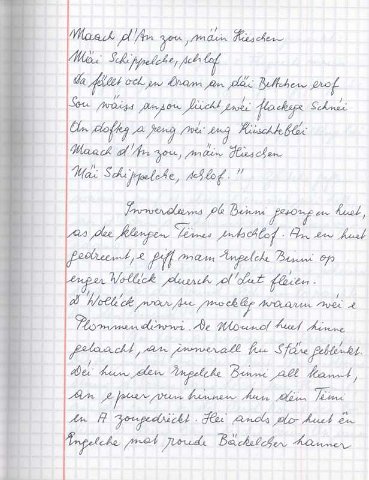 Maach d'An zou, mäin Hieschen
Mäi Schippelche, schlof
Da fällt och en Dram an däi Bettchen erof
Sou wäiss an sou liicht wéi flackege Schnéi
Un dofteg a reng wéi eng Kiischtebléi
Maach d'An zou, mäin Hieschen
Mäi Schippelche, schlof."
Innerdeems de Binni gesongen huet,
as dee klengen Témes entschlof. An en huet
gedreemt, e giff mam Engelche Binni op
enger Wollek duerch d'Lut fléien.
D'Wollek war su mockleg waarm wéi e
Plommendiwwi. De Mound huet hinne
gelaacht, an iwwerall hu Stäre geblénkt.
Déi hun den Engelche Binni all kannt,
an e puer vun hinnen hun dem Témi
en A zougedréckt. Hei an do huet en
Engelche mat roude Bäckelcher hanner